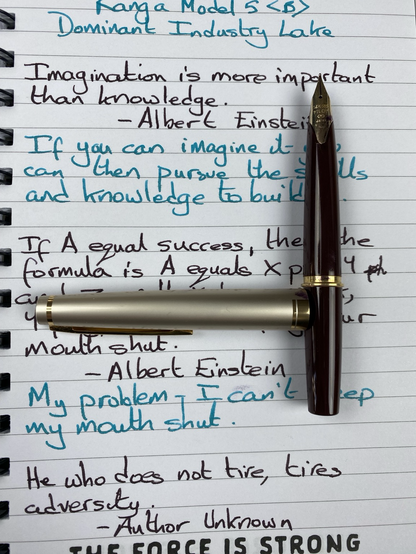 Kanga Model 5 <B>
Dominant Industry Lake
Imagination is more important
than knowledge.
- Albert Einstein
If you can imagine it
can then pursue the
and knowledge to build
If A equal success, the
formula is A equals X
mouth shut.
- Albert Einstein
My problem - I can't
my mouth shut.
He who does not tire, tires
adversity.
- Author Unknown
THE FORCE IS STRONG